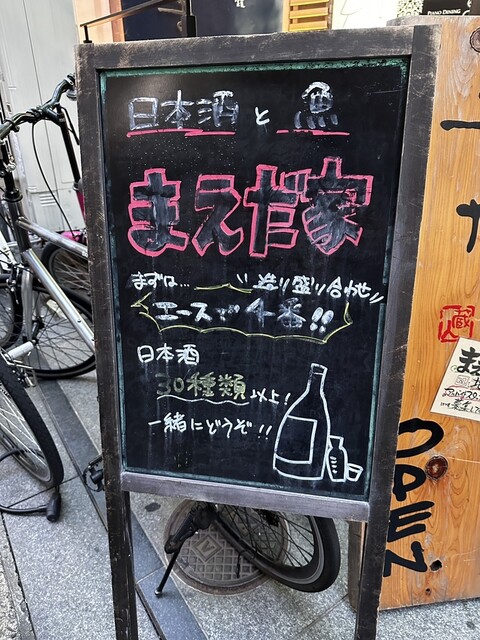 PIANO DINING
日本酒と魚
まえだ家
まずは… 造り盛り合わせ
エースで4番!!
日本酒
30種類以上!
一緒にどうぞ!!
OPEN